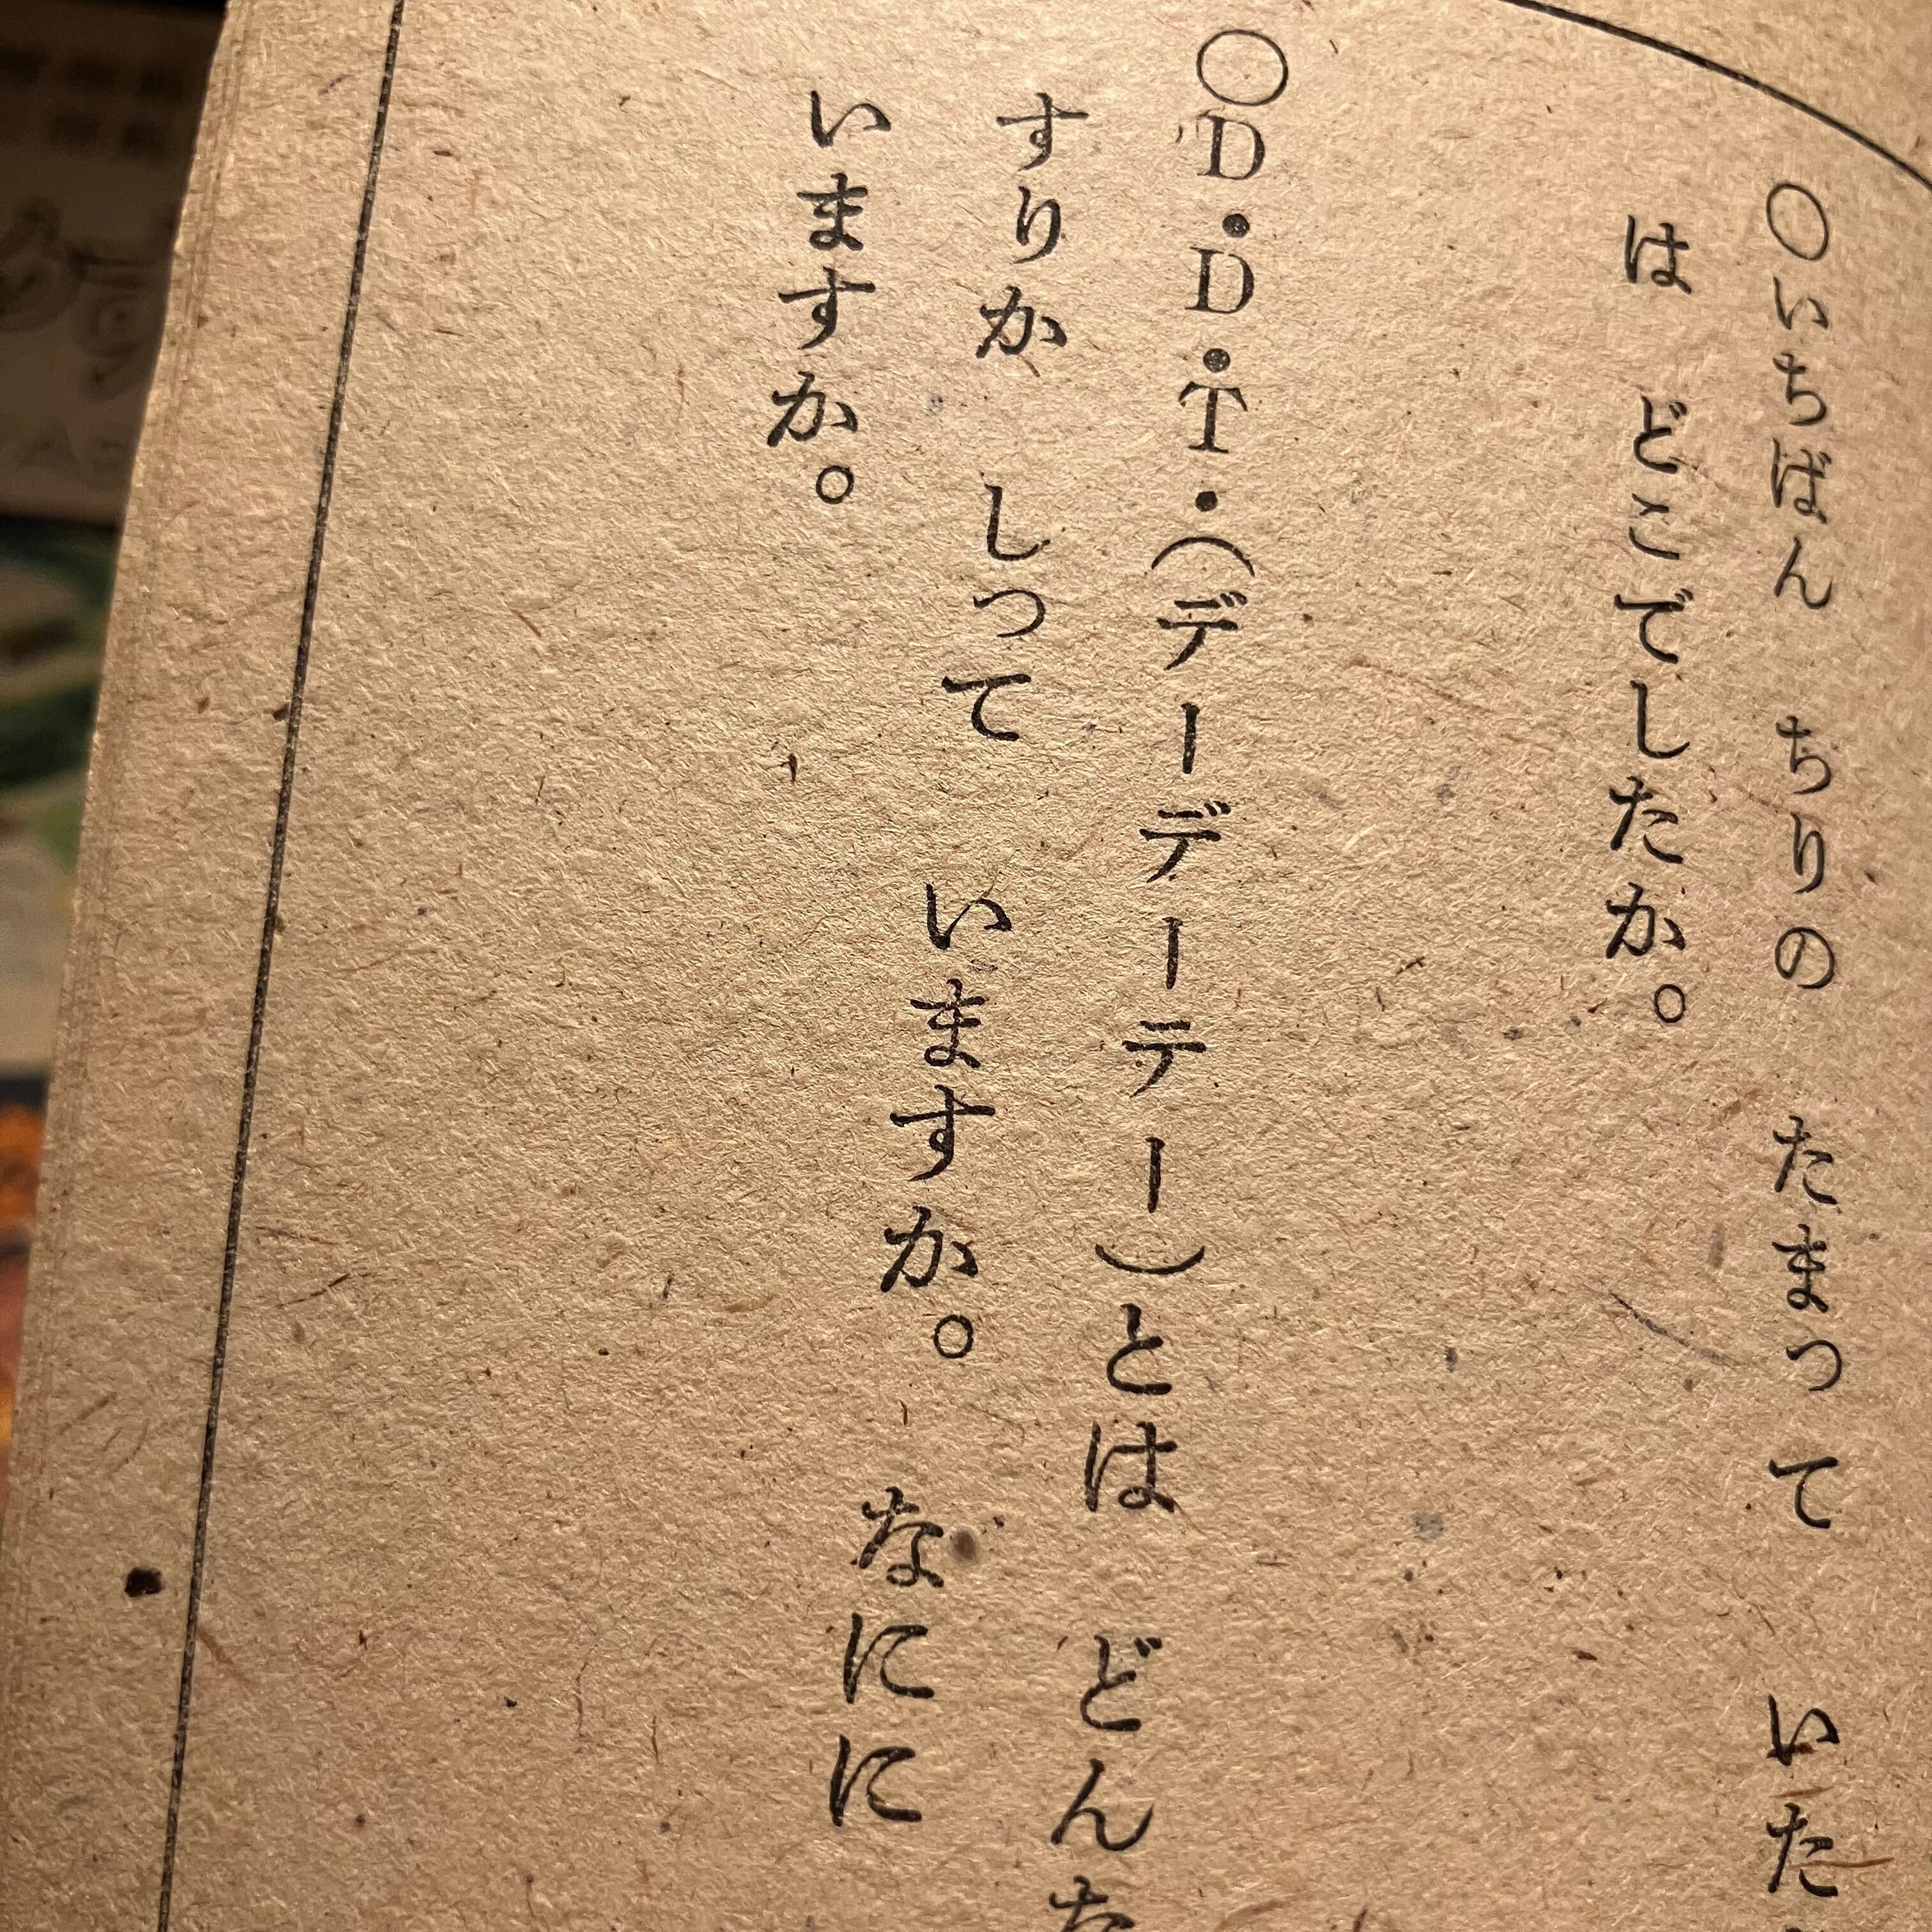 ○いちばん ちりの たまって いた
は どこでしたか。
○D・D・T・(デーデーテー)とは どん
すりか しって いますか。 なにに
いますか。